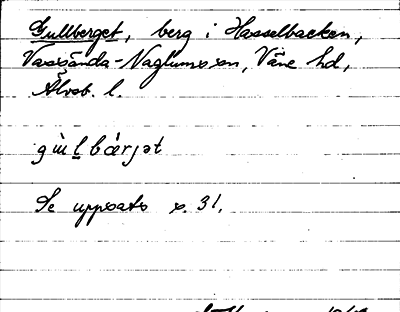 Gullberget, berg i Hasselbacken,
Vassända-Naglums sn, Väne hd,
Älvsb. l.
gùḷbǽrjət
Se uppsats s. 31.